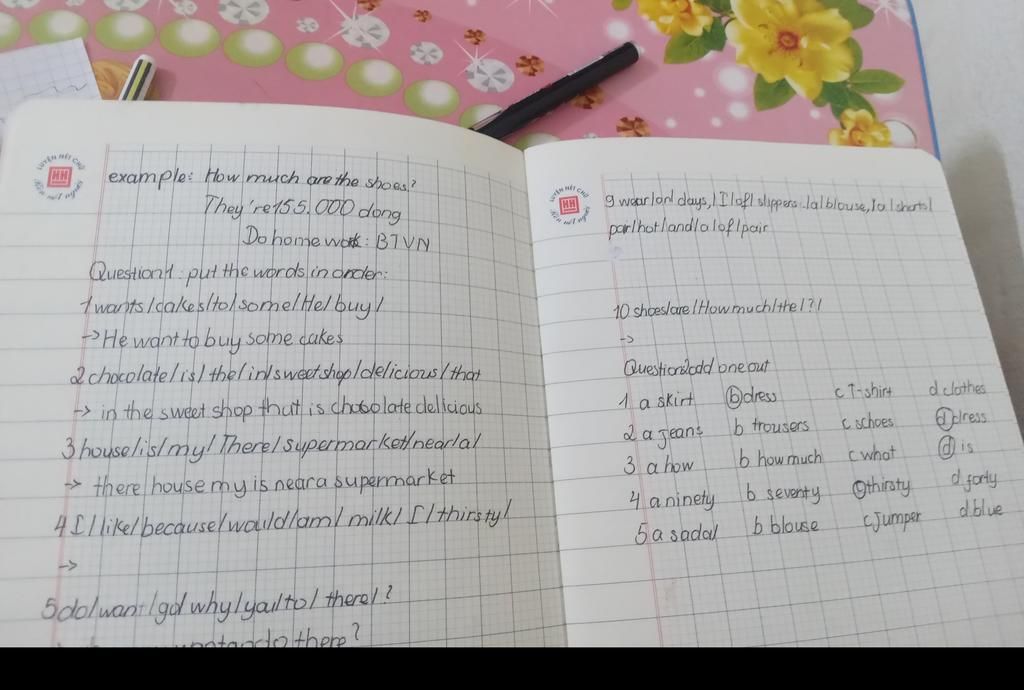 LUYỆN NÉT CHỮ
RÈN NẾT NGƯỜI
HH
example: How much are the shoes?
They're 155.000 dong
Do homework: BTVN
Question 1: put the words in order:
1 wants/cakes/to/some/He/buy/
-> He want to buy some cakes
2 chocolate/is/the/in/sweet shop/delicious/that
-> in the sweet shop that is chocolate delicious
3 house/is/my/There/supermarket/near/a/
-> there house my is near a supermarket
4 I/like/because/would/am/milk/I/thirsty/
->
5 do/want/go/why/yau/to/there/?
there?
LUYỆN NÉT CHỮ
RÈN NẾT NGƯỜI
HH
9 wear/on/days,/I/of/slippers./a/blouse,/a/shorts/
pair/hot/and/a/of/pair
10 shoes/are/How much/the/?/
->
Question 2: odd one out
1 a skirt b dress c T-shirt d clothes
2 a jeans b trousers c schoes d dress
3 a how b how much c what d is
4 a ninety b seventy c thirsty d forty
5 a sadal b blouse c jumper d blue